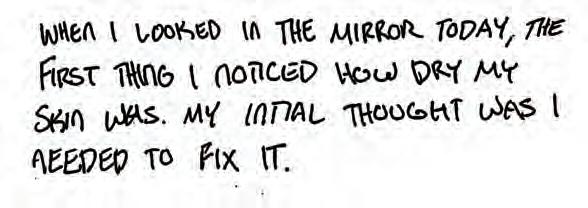 WHEN I LOOKED IN THE MIRROR TODAY, THE
FIRST THING I NOTICED HOW DRY MY
SKIN WAS. MY INITIAL THOUGHT WAS I
NEEDED TO FIX IT.